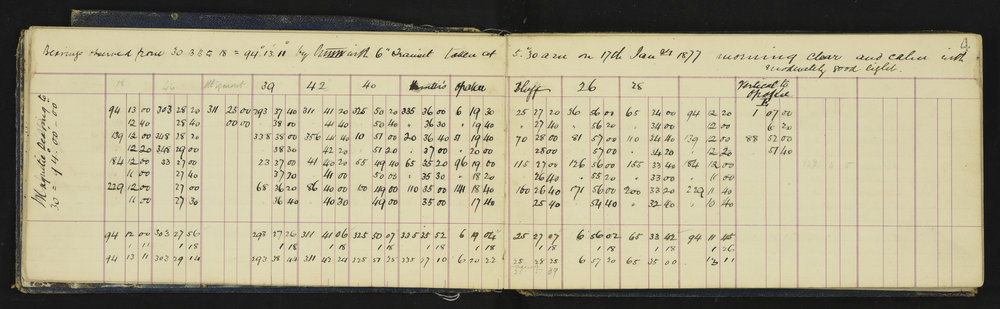 Bearings observed from 30 3 B to 18 = 94° 13' 11" by with 6" Transit taken at 5.30 am on 17th Jan 1877 morning clear and calm with
moderately good light. 9
18 46 39 42 40 Opahea Bluff 26 28 Vertical to
B
Magnetic Bearing to
30 = 94° 00' 00"
94 13 00 303 28 20 311 25 00 293 37 40 311 41 20 325 50 20 335 36 00 6 19 30 25 27 20 36 56 00 65 34 00 94 12 20 1 07 00
12 40 28 40 00 00 38 00 40 40 50 40 " 36 30 " 19 40 " 27 40 " 56 20 34 00 12 00 6 20
139 12 00 348 28 20 338 38 00 356 41 40 10 51 00 20 36 40 51 19 40 70 28 00 81 57 00 110 34 40 139 12 00 88 52 00
12 20 348 29 00 38 30 42 20 51 20 " 37 00 20 00 28 00 57 00 34 20 12 20 51 40
184 12 00 33 27 00 23 37 00 41 40 20 55 49 40 65 35 20 96 19 00 115 27 00 126 56 00 155 33 40 184 12 00
11 00 27 40 37 20 41 00 50 00 " 35 30 " 18 20 26 40 " 55 20 33 00 11 00
229 12 00 27 00 68 36 20 86 40 00 100 49 00 110 35 00 141 18 40 160 26 40 171 56 00 200 33 20 229 11 40
11 00 27 30 36 40 40 30 49 00 35 00 17 40 25 40 54 40 32 40 10 40
94 12 00 303 27 56 293 37 26 311 41 06 325 50 07 335 25 52 6 19 04 25 27 07 6 56 02 65 33 42 94 11 45
1 11 1 18 1 18 1 18 1 18 1 18 1 18 1 18 1 18 1 18 1 26
94 13 11 303 29 14 293 38 44 311 42 24 325 51 25 335 27 10 6 20 22 25 28 25 6 57 20 65 35 00 13 11
39